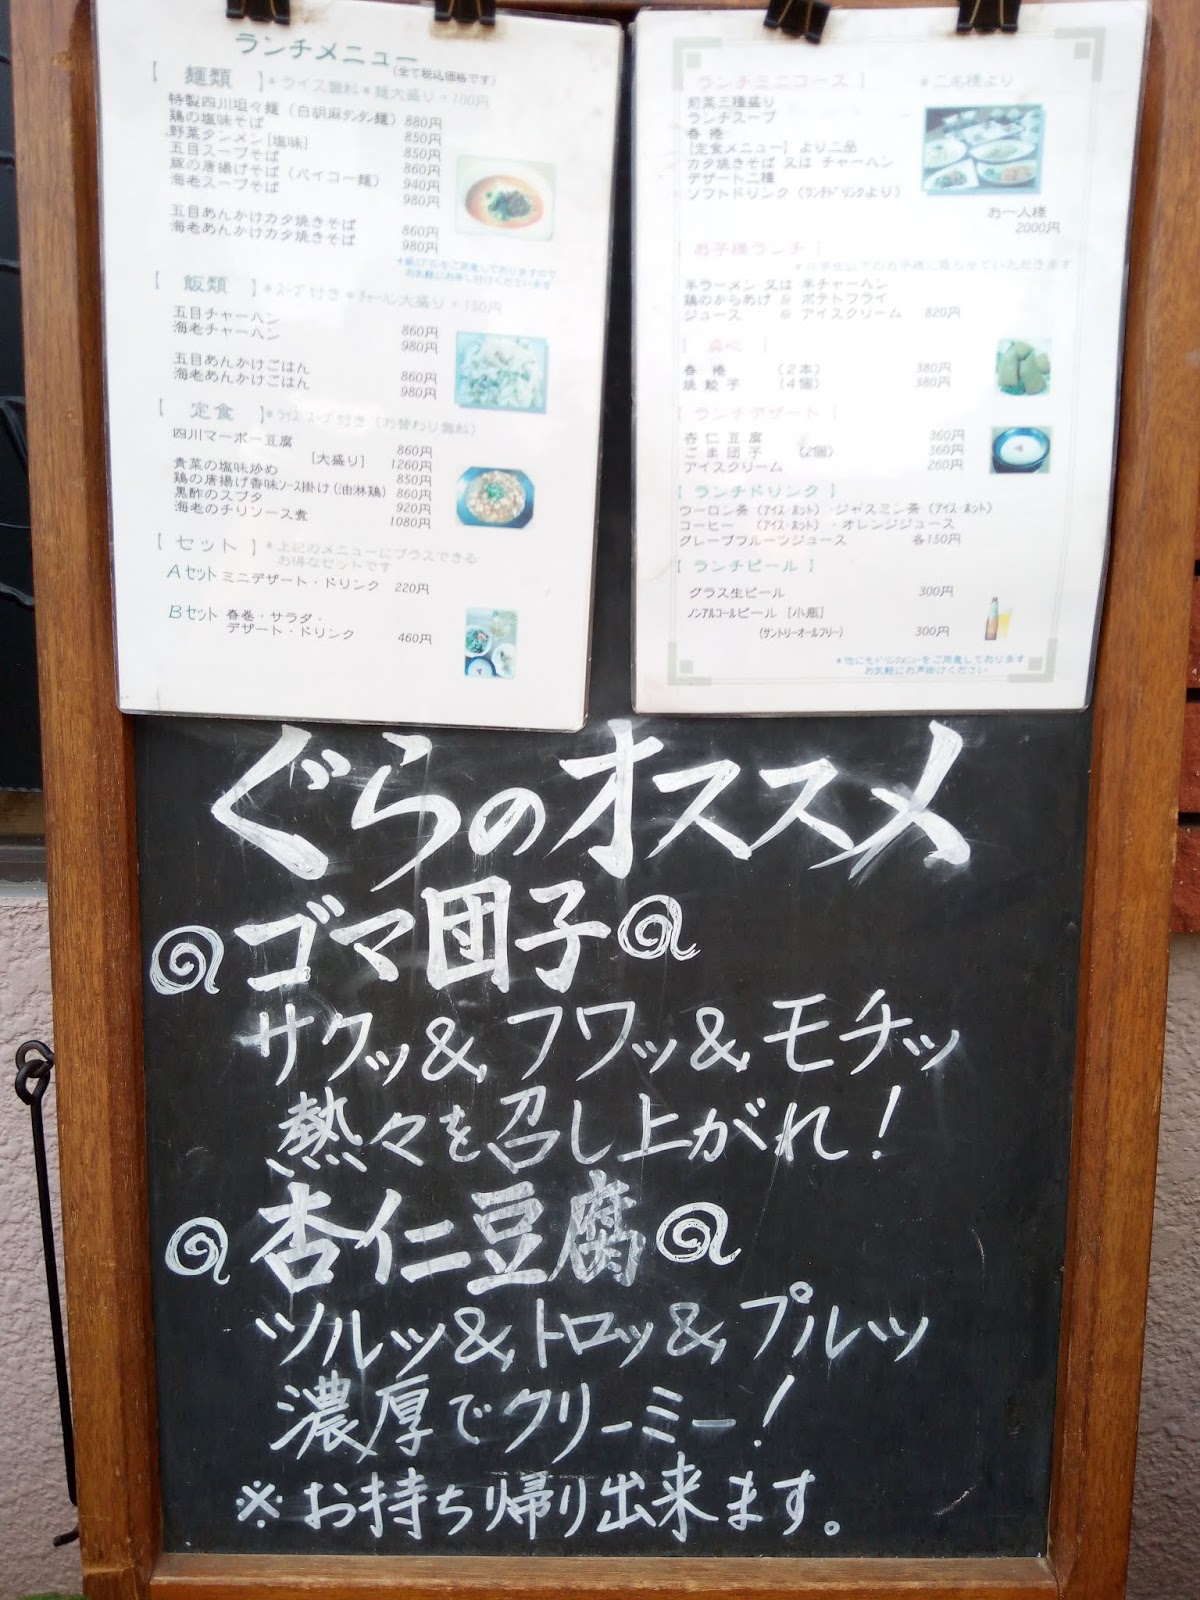 ランチメニュー
(全て税込価格です)
【 麺類 】＊ライス無料＊麺大盛り＋100円
特製四川坦々麺（白胡麻タンタン麺）880円
鶏の塩味そば 850円
野菜タンメン[塩味] 850円
五目スープそば 860円
豚の唐揚げそば（パイコー麺） 940円
海老スープそば 980円
五目あんかけカタ焼きそば 860円
海老あんかけカタ焼きそば 980円
お気軽にお申し付けくださいませ
【 飯類 】＊スープ付き＊チャーハン大盛り＋150円
五目チャーハン 860円
海老チャーハン 980円
五目あんかけごはん 860円
海老あんかけごはん 980円
【 定食 】＊ライス・スープ付き（お替わり無料）
四川マーボー豆腐 860円
[大盛り] 1260円
青菜の塩味炒め 850円
鶏の唐揚げ香味ソース掛け（油林鶏）860円
黒酢のスブタ 920円
海老のチリソース煮 1080円
【 セット 】＊上記のメニューにプラスできる
お得なセットです
Aセット ミニデザート・ドリンク 220円
Bセット 春巻・サラダ・
デザート・ドリンク 460円
ランチミニコース 】 ＊二名様より
前菜三種盛り
ランチスープ
春 捲
[定食メニュー] より二品
カタ焼きそば 又は チャーハン
デザート二種
ソフトドリンク（ランチドリンクより）
お一人様
2000円
【 お子様ランチ 】
＊小学生以下のお子様に限らせていただきます
半ラーメン 又は 半チャーハン
鶏のからあげ ＆ ポテトフライ
ジュース ＆ アイスクリーム 820円
【 点心 】
春 捲 （2本） 380円
焼 餃 子 （4個） 380円
【 ランチデザート 】
杏 仁 豆 腐 360円
ごま団子 （2個） 360円
アイスクリーム 260円
【 ランチドリンク 】
ウーロン茶（アイス・ホット）・ジャスミン茶（アイス・ホット）
コーヒー （アイス・ホット）・オレンジジュース
グレープフルーツジュース 各150円
【 ランチビール 】
グラス生ビール 300円
ノンアルコールビール [小瓶]
（サントリーオールフリー） 300円
＊他にもドリンクメニューをご用意しております
お気軽にお声掛けください
ぐらのオススメ
ゴマ団子
サクッ&フワッ&モチッ
熱々を召し上がれ！
杏仁豆腐
ツルッ&トロッ&プルッ
濃厚でクリーミー！
※お持ち帰り出来ます。